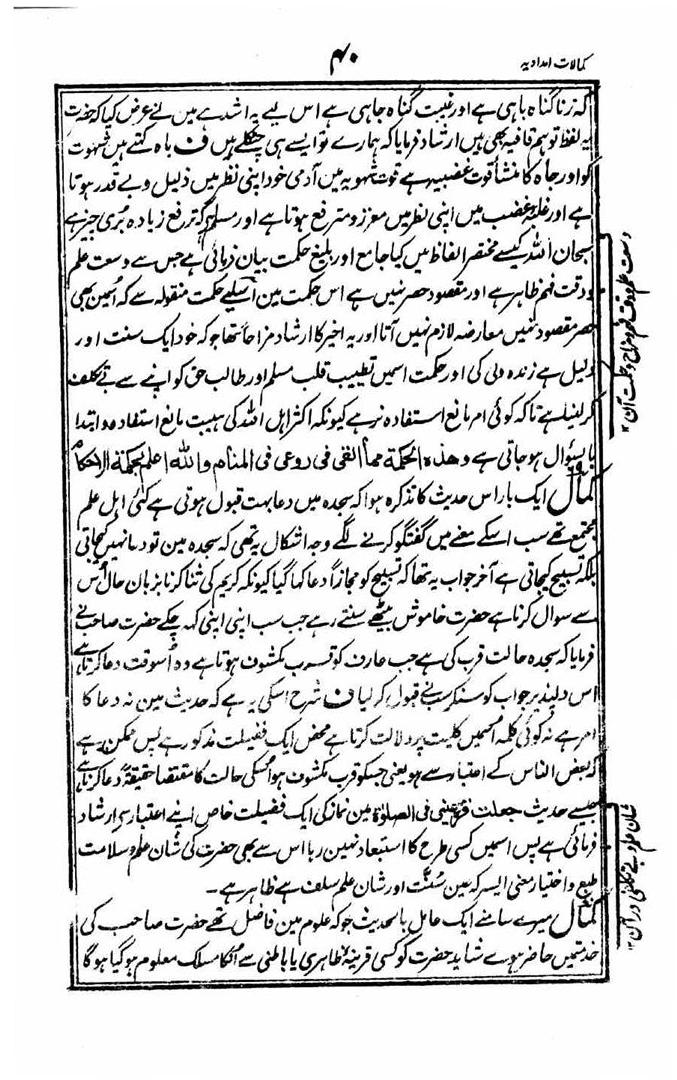 کمالات امدادیہ
۴۰
کہ زنا گناہ باہی ہے اور غیبت گناہ جاہی ہے اس لیے یہ اشد ہے میں نے عرض کیا کہ حضرت
یہ لفظ تو ہم قافیہ بھی ہیں ارشاد فرمایا کہ ہمارے تو ایسے ہی چٹکلے ہیں ف باہ کہتے ہیں شہوت
کو اور جاہ کا منشأ قوت غضبیہ ہے قوت شہویہ میں آدمی خود اپنی نظر میں ذلیل و بے قدر ہوتا
ہے اور غلبہ غضب میں اپنی نظر میں معزز و مترفع ہوتا ہے اور مسلم ہے کہ ترفع زیادہ بُری چیز ہے
سبحان اللہ کیسے مختصر الفاظ میں کیا جامع اور بلیغ حکمت بیان فرمائی ہے جس سے وسعت علم
و دقت فہم ظاہر ہے اور مقصود حصر نہیں ہے اس حکمت مین اسلیے حکمت منقولہ سے کہ اُسمین بھی
حصر مقصود نہیں معارضہ لازم نہیں آتا اور یہ اخیر کا ارشاد مزاحاً تھا جو کہ خود ایک سنت اور
دلیل ہے زندہ دلی کی اور حکمت اسمیں تطییب قلب مسلم اور طالب حق کو اپنے سے بے تکلف
کر لینا ہے تاکہ کوئی امر مانع استفادہ نرہے کیونکہ اکثر اہل اللہ کی ہیبت مانع استفادہ و ابتدا
با سؤال ہو جاتی ہے و ھذہ الحکمۃ مما القی فی روعی فی المنام واللہ اعلم بحکمۃ الاحکام
کمال ایک بار اس حدیث کا تذکرہ ہوا کہ سجدہ میں دعا بہت قبول ہوتی ہے کئی اہل علم
مجتمع تھے سب اسکے معنے میں گفتگو کرنے لگے وجہ اشکال یہ تھی کہ سجدہ مین تو دعا نہیں کیجاتی
بلکہ تسبیح کیجاتی ہے آخر جواب یہ تھا کہ تسبیح کو مجازاً دعا کہا گیا کیونکہ کریم کی ثنا کرنا بزبان حال اُس
سے سوال کرنا ہے حضرت خاموش بیٹھے سنتے رہے جب سب اپنی اپنی کہہ چکے حضرت صاحب نے
فرمایا کہ سجدہ حالت قرب کی ہے جب عارف کو قرب مکشوف ہوتا ہے وہ اُسوقت دعا کرتا ہے
اس دلپذیر جواب کو سنکر سبنے قبول کر لیا ف شرح اسکی یہ ہے کہ حدیث مین نہ دعا کا
امر ہے نہ کوئی کلمہ اُسمیں کلیت پر دلالت کرتا ہے محض ایک فضیلت مذکور ہے پس ممکن ہے
کہ بعض الناس کے اعتبار سے ہو یعنی جسکو قرب مکشوف ہوا اُسکی حالت کا مقتضا حقیقۃً دعا کرنا ہے
جیسے حدیث جعلت قرۃ عینی فی الصلوٰۃ مین نماز کی ایک فضیلت خاص اپنے اعتبار سے ارشاد
فرمائی ہے پس اسمیں کسی طرح کا استبعاد نہین رہا اس سے بھی حضرت کی شان علم و سلامت
طبع و اختیار معنی ایسر کہ عین سنت اور شان علم سلف ہے ظاہر ہے ۔
کمال میرے سامنے ایک عامل بالحدیث جو کہ علوم مین فاضل تھے حضرت صاحب کی
خدمتمیں حاضر ہوے شاید حضرت کو کسی قرینۂ ظاہری یا باطنی سے اُنکا مسلک معلوم ہو گیا ہوگا
وسعت علم و دقت فہم و مزاح و حکمت آن ۱۲
شان علم و بے تکلفی در آن ۱۲